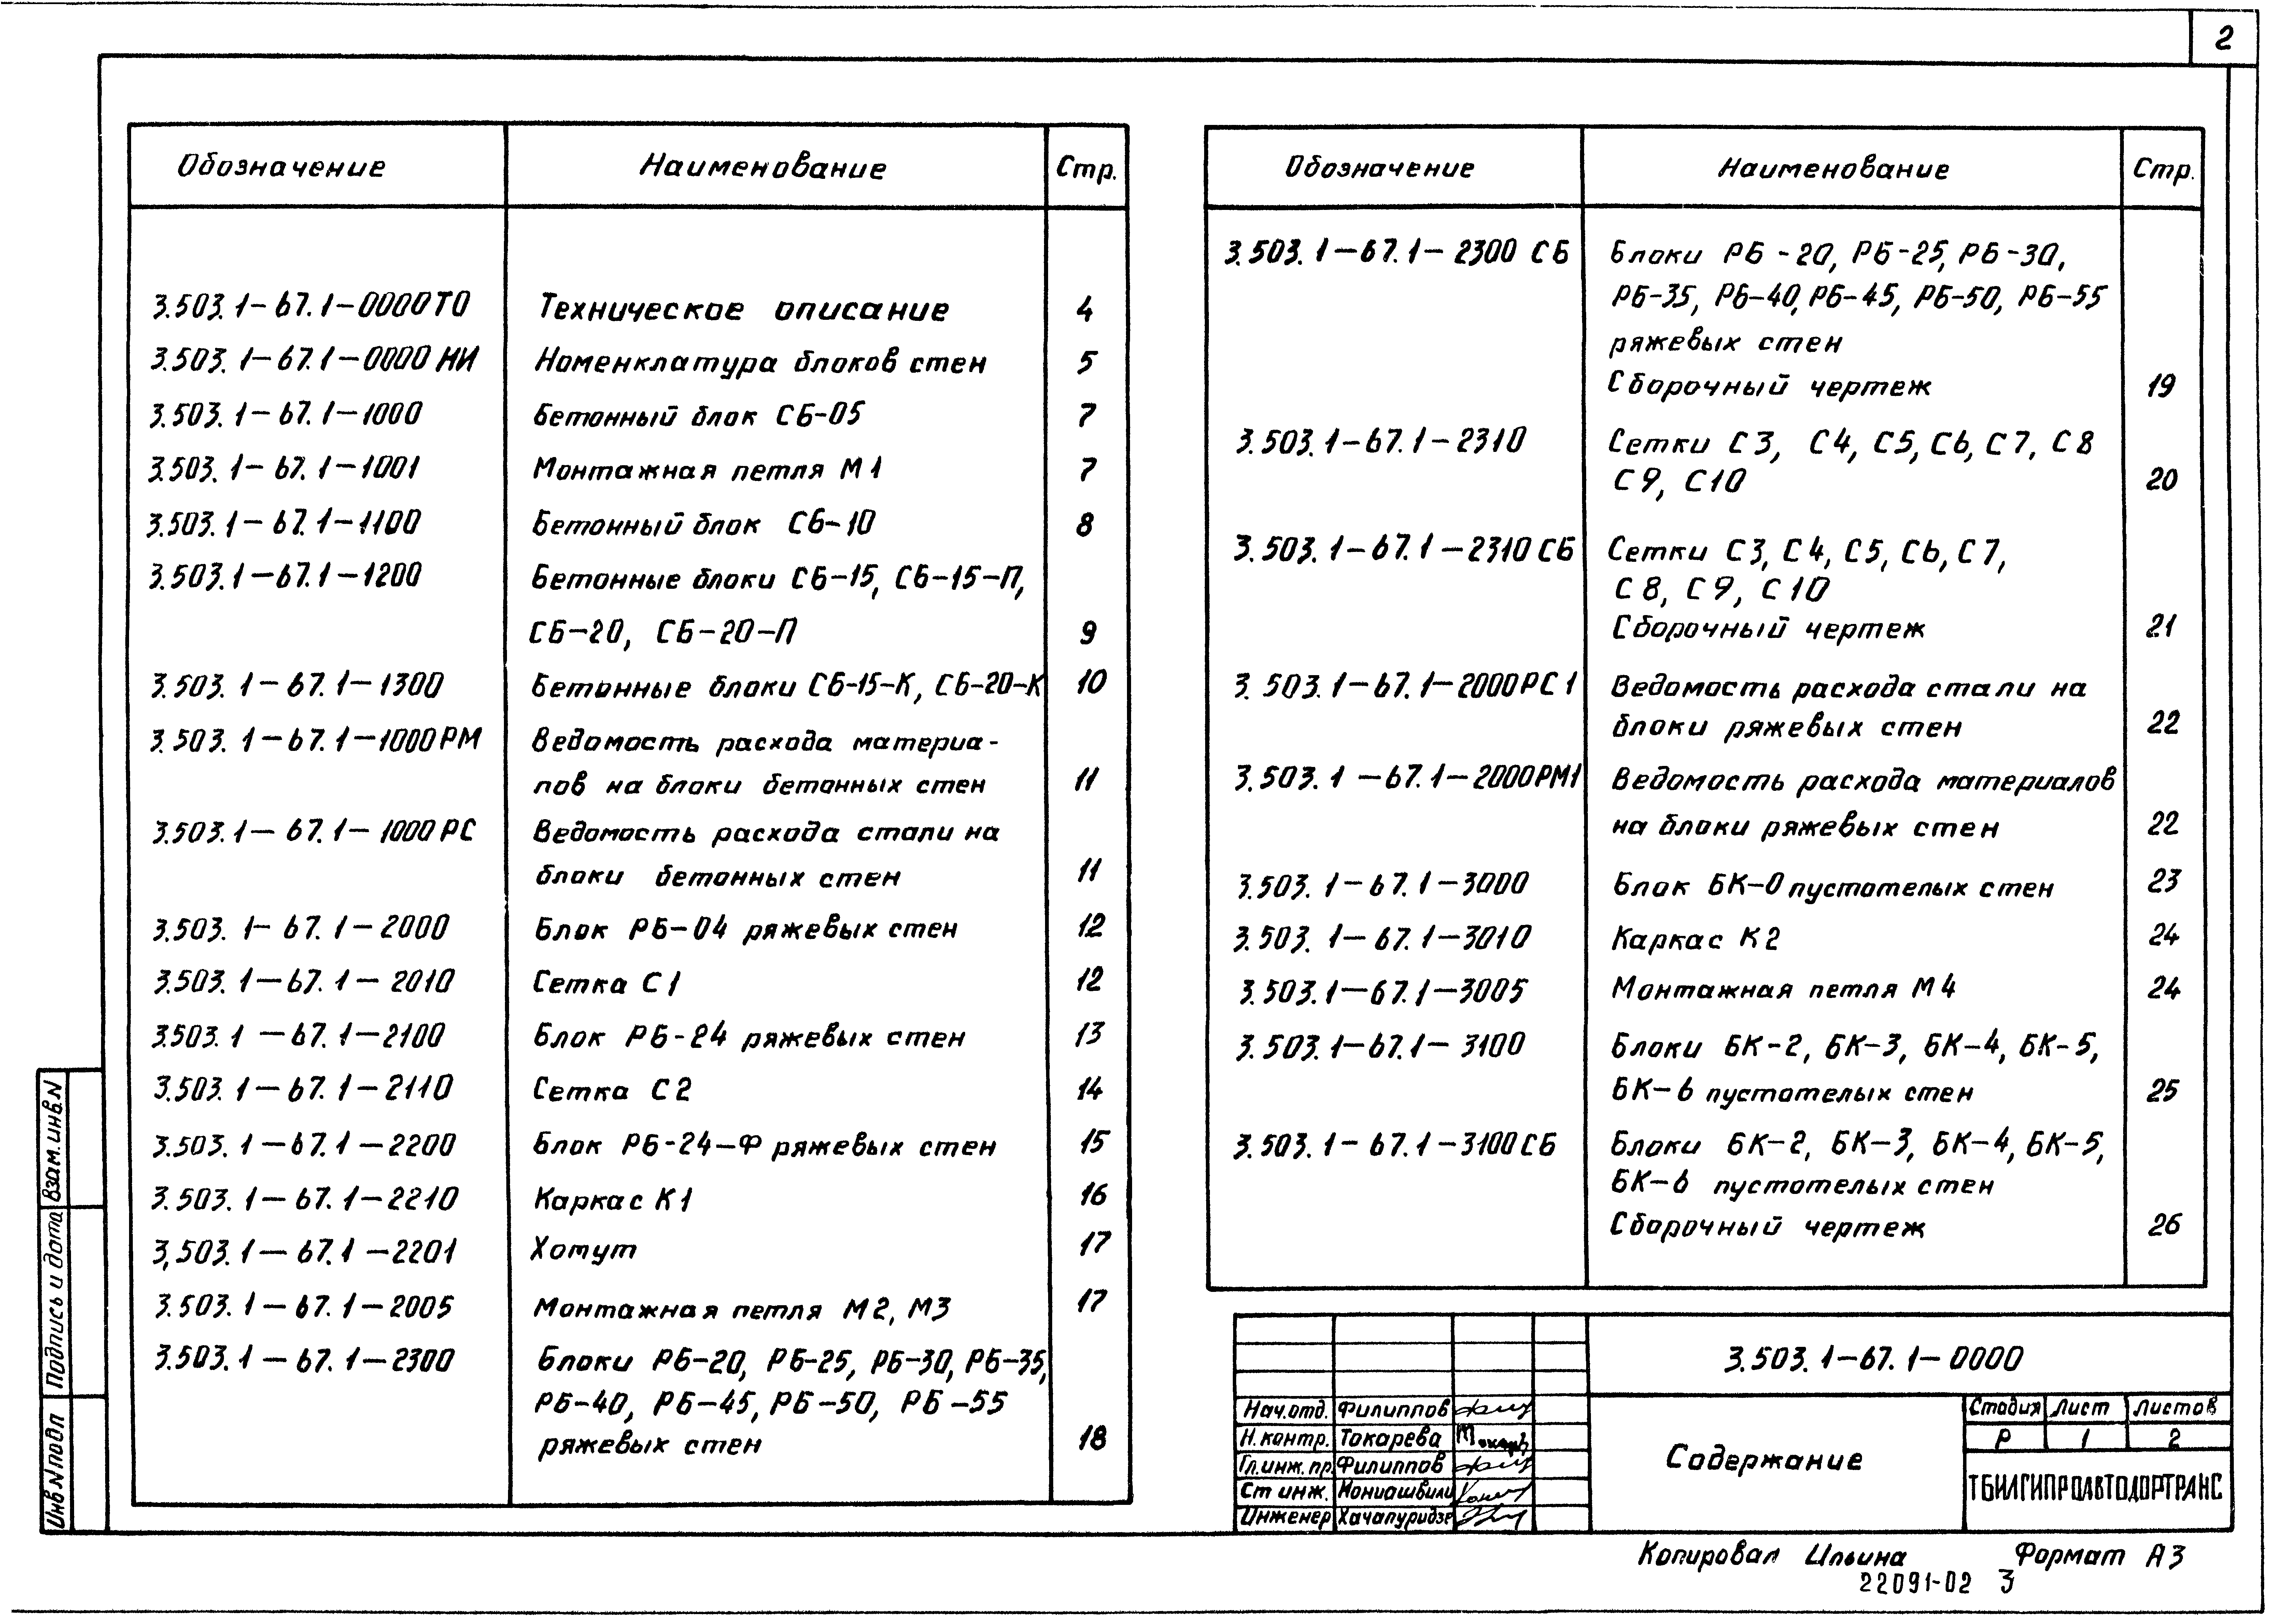 2
Обозначение Наименование Стр.
3.503.1-67.1-0000ТО Техническое описание 4
3.503.1-67.1-0000НИ Номенклатура блоков стен 5
3.503.1-67.1-1000 Бетонный блок СБ-05 7
3.503.1-67.1-1001 Монтажная петля М1 7
3.503.1-67.1-1100 Бетонный блок СБ-10 8
3.503.1-67.1-1200 Бетонные блоки СБ-15, СБ-15-П,
СБ-20, СБ-20-П 9
3.503.1-67.1-1300 Бетонные блоки СБ-15-К, СБ-20-К 10
3.503.1-67.1-1000РМ Ведомость расхода материа-
лов на блоки бетонных стен 11
3.503.1-67.1-1000РС Ведомость расхода стали на
блоки бетонных стен 11
3.503.1-67.1-2000 Блок РБ-04 ряжевых стен 12
3.503.1-67.1-2010 Сетка С1 12
3.503.1-67.1-2100 Блок РБ-24 ряжевых стен 13
3.503.1-67.1-2110 Сетка С2 14
3.503.1-67.1-2200 Блок РБ-24-Ф ряжевых стен 15
3.503.1-67.1-2210 Каркас К1 16
3,503.1-67.1-2201 Хомут 17
3.503.1-67.1-2005 Монтажная петля М2, М3 17
3.503.1-67.1-2300 Блоки РБ-20, РБ-25, РБ-30, РБ-35,
РБ-40, РБ-45, РБ-50, РБ-55
ряжевых стен 18
Обозначение Наименование Стр.
3.503.1-67.1-2300 СБ Блоки РБ-20, РБ-25, РБ-30,
РБ-35, РБ-40, РБ-45, РБ-50, РБ-55
ряжевых стен
Сборочный чертеж 19
3.503.1-67.1-2310 Сетки С3, С4, С5, С6, С7, С8
С9, С10 20
3.503.1-67.1-2310 СБ Сетки С3, С4, С5, С6, С7,
С8, С9, С10
Сборочный чертеж 21
3.503.1-67.1-2000РС1 Ведомость расхода стали на
блоки ряжевых стен 22
3.503.1-67.1-2000РМ1 Ведомость расхода материалов
на блоки ряжевых стен 22
3.503.1-67.1-3000 Блок БК-0 пустотелых стен 23
3.503.1-67.1-3010 Каркас К2 24
3.503.1-67.1-3005 Монтажная петля М4 24
3.503.1-67.1-3100 Блоки БК-2, БК-3, БК-4, БК-5,
БК-6 пустотелых стен 25
3.503.1-67.1-3100СБ Блоки БК-2, БК-3, БК-4, БК-5,
БК-6 пустотелых стен
Сборочный чертеж 26
Взам. инв. N
Подпись и дата
Инв N подл
3.503.1-67.1-0000
Нач.отд. Филиппов
Н.контр. Токарева
Гл.инж.пр Филиппов
Ст инж. Кониашвили
Инженер Хачапуридзе
Содержание
Стадия Лист Листов
Р 1 2
ТБИЛГИПРОАВТОДОРТРАНС
Копировал Ильина Формат А3
22091-02 3